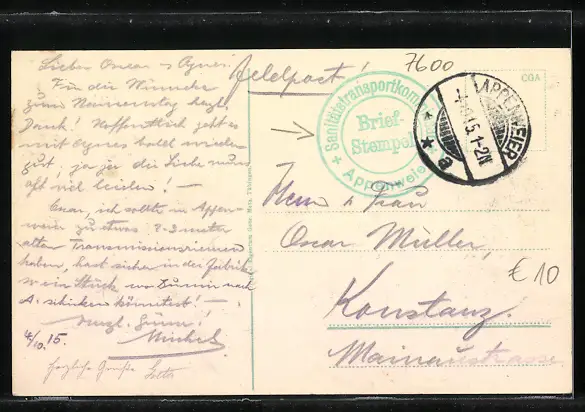 Lieber Oscar & Agnes.
Für die Wünsche
zum Namenstag herzl.
Dank! Hoffentlich geht es
mit Agnes bald wieder
gut, ja ja die Liebe muss
oft viel leiden! —
Oscar, ich sollte in Appen-
weier zu etwas 2-3 meter
alten Transmissionsriemen
haben, hast sicher in der Fabrik
so ein Stück wo Du mir nach
A. schicken könntest! —
Herzl. Grüsse!
4/10. 15. Michel
herzliche Grüße
Feldpost!
7600
CGA
Sanitätstransportkom
Brief-
Stempel
+ Appenweie
APPENWEIER
15.1-2N.
* * a
Herrn & Frau
Oscar Müller,
€ 10
Konstanz.
Mainaustrasse